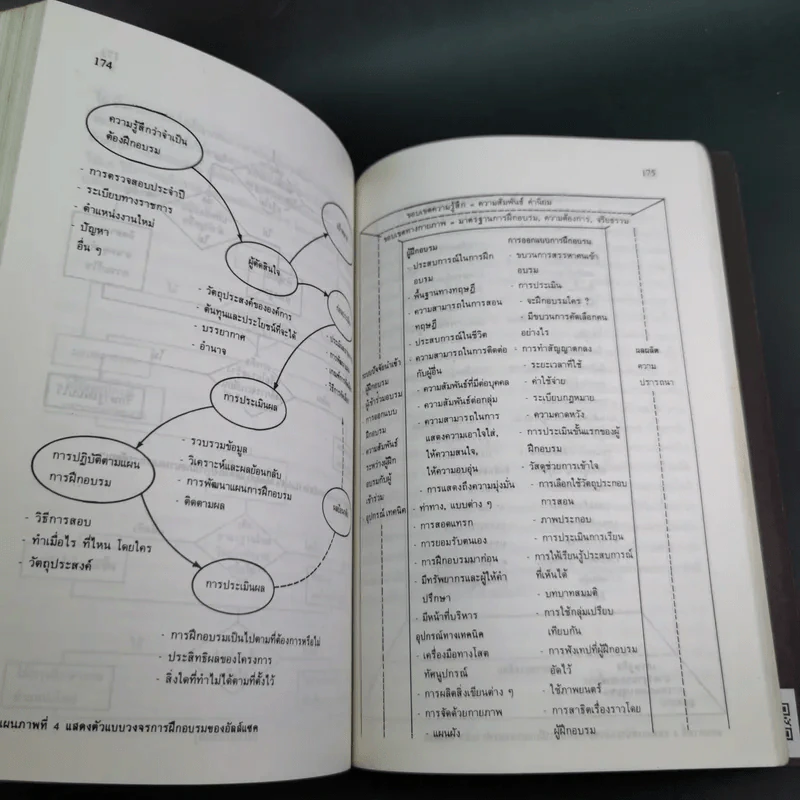 174
ความรู้สึกว่าจำเป็น
ต้องฝึกอบรม
- การตรวจสอบประจำปี
- ระเบียบทางราชการ
- ตำแหน่งงานใหม่
- ปัญหา
อื่น ๆ
ผู้ตัดสินใจ
- วัตถุประสงค์ขององค์การ
- ต้นทุนและประโยชน์ที่จะได้
- บรรยากาศ
- อำนาจ
การประเมินผล
- รวบรวมข้อมูล
- วิเคราะห์และผลย้อนกลับ
- การพัฒนาแผนการฝึกอบรม
- ติดตามผล
การปฏิบัติตามแผน
การฝึกอบรม
- วิธีการสอบ
- ทำเมื่อไร ที่ไหน โดยใคร
- วัตถุประสงค์
การประเมินผล
- การฝึกอบรมเป็นไปตามที่ต้องการหรือไม่
- ประสิทธิผลของโครงการ
- สิ่งใดที่ทำไม่ได้ตามที่ตั้งไว้
แผนภาพที่ 4 แสดงตัวแบบวงจรการฝึกอบรมของอัลล์แซค
175
ขอบเขตความรู้สึก = ความสัมพันธ์ ค่านิยม
ขอบเขตทางกายภาพ = มาตรฐานการฝึกอบรม, ความต้องการ, จริยธรรม
ผู้ฝึกอบรม
- ประสบการณ์ในการฝึก
อบรม
- พื้นฐานทางทฤษฎี
- ความสามารถในการสอน
ทฤษฎี
- ประสบการณ์ในชีวิต
- ความสามารถในการติดต่อ
กับผู้อื่น
- ความสัมพันธ์ที่มีต่อบุคคล
- ความสัมพันธ์ต่อกลุ่ม
- ความสามารถในการ
แสดงความเอาใจใส่,
ให้ความสนใจ,
ให้ความอบอุ่น
- การแสดงถึงความมุ่งมั่น
- ท่าทาง, แบบต่าง ๆ
- การสอดแทรก
- การยอมรับตนเอง
- การฝึกอบรมมาก่อน
- มีทรัพยากรและผู้ให้คำ
ปรึกษา
- มีหน้าที่บริหาร
อุปกรณ์ทางเทคนิค
- เครื่องมือทางโสต
ทัศนูปกรณ์
- การผลิตสิ่งเขียนต่าง ๆ
- การจัดด้วยกายภาพ
- แผนผัง
การออกแบบการฝึกอบรม
- ขบวนการสรรหาคนเข้า
อบรม
- การประเมิน
- จะฝึกอบรมใคร ?
- มีขบวนการคัดเลือกคน
อย่างไร
- การทำสัญญาตกลง
- ระยะเวลาที่ใช้
- ค่าใช้จ่าย
- ระเบียบกฎหมาย
- ความคาดหวัง
- การประเมินขั้นแรกของผู้
ฝึกอบรม
- วัสดุช่วยการเข้าใจ
- การเลือกใช้วัตถุประกอบ
การสอน
- ภาพประกอบ
- การประเมินการเรียน
- การให้เรียนรู้ประสบการณ์
ที่เห็นได้
- บทบาทสมมติ
- การใช้กลุ่มเปรียบ
เทียบกัน
- การฟังเทปที่ผู้ฝึกอบรม
อัดไว้
- ใช้ภาพยนตร์
- การสาธิตเรื่องราวโดย
ผู้ฝึกอบรม
ผลผลิต
ความ
ปรารถนา